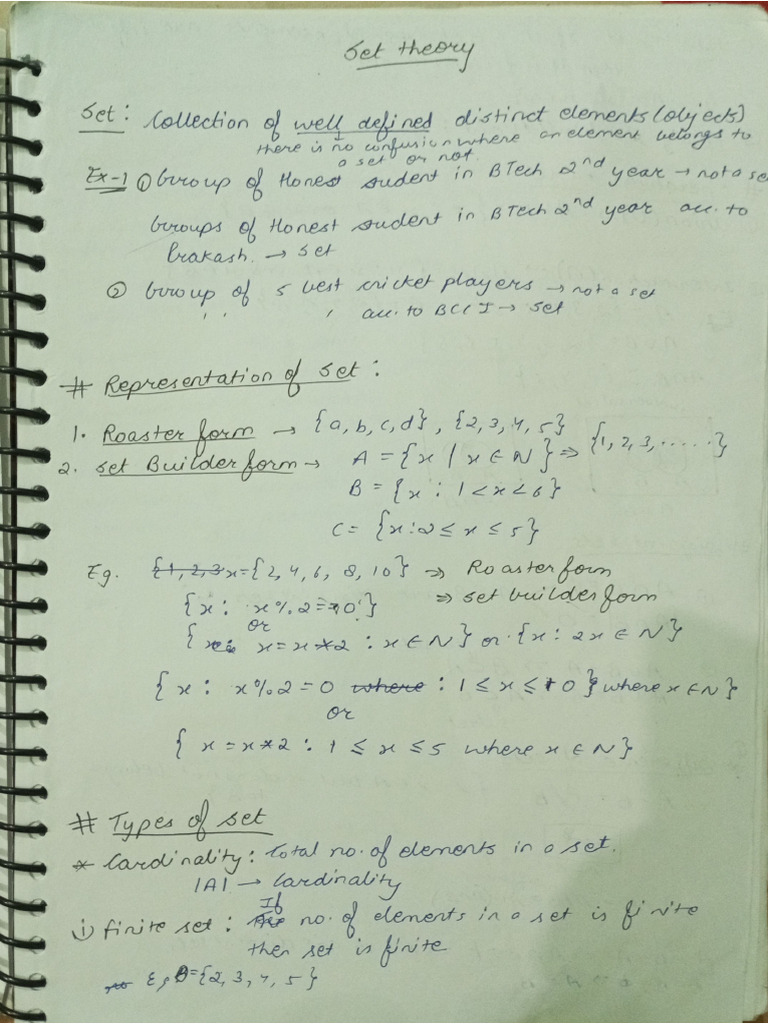 Set theory
Set: Collection of well defined distinct elements (objects)
there is no confusion where an element belongs to
a set or not.
Ex-1 ① Group of Honest sudent in BTech 2nd year → not a se
Groups of Honest student in BTech 2nd year acc. to
Prakash. → set
② Group of 5 best cricket players → not a set
" " acc. to BCCI → set
# Representation of set:
1. Roaster form → {a, b, c, d}, {2, 3, 4, 5}
2. Set Builder form → A = {x / x ∈ N} ⇒ {1, 2, 3, .....}
B = {x : 1 < x < 6}
C = {x : 2 ≤ x ≤ 5}
Eg. {1, 2, 3 x = {2, 4, 6, 8, 10} ⇒ Roaster form
{x : x % 2 = 0} ⇒ set builder form
or
{ x = x * 2 : x ∈ N} or {x : 2x ∈ N}
{x : x % 2 = 0 where : 1 ≤ x ≤ 10} where x ∈ N}
or
{ x = x * 2 : 1 ≤ x ≤ 5 where x ∈ N}
# Types of set
* Cardinality: Total no. of elements in a set.
|A| → Cardinality
i) finite set: If no. of elements in a set is finite
then set is finite
Eg B = {2, 3, 4, 5}